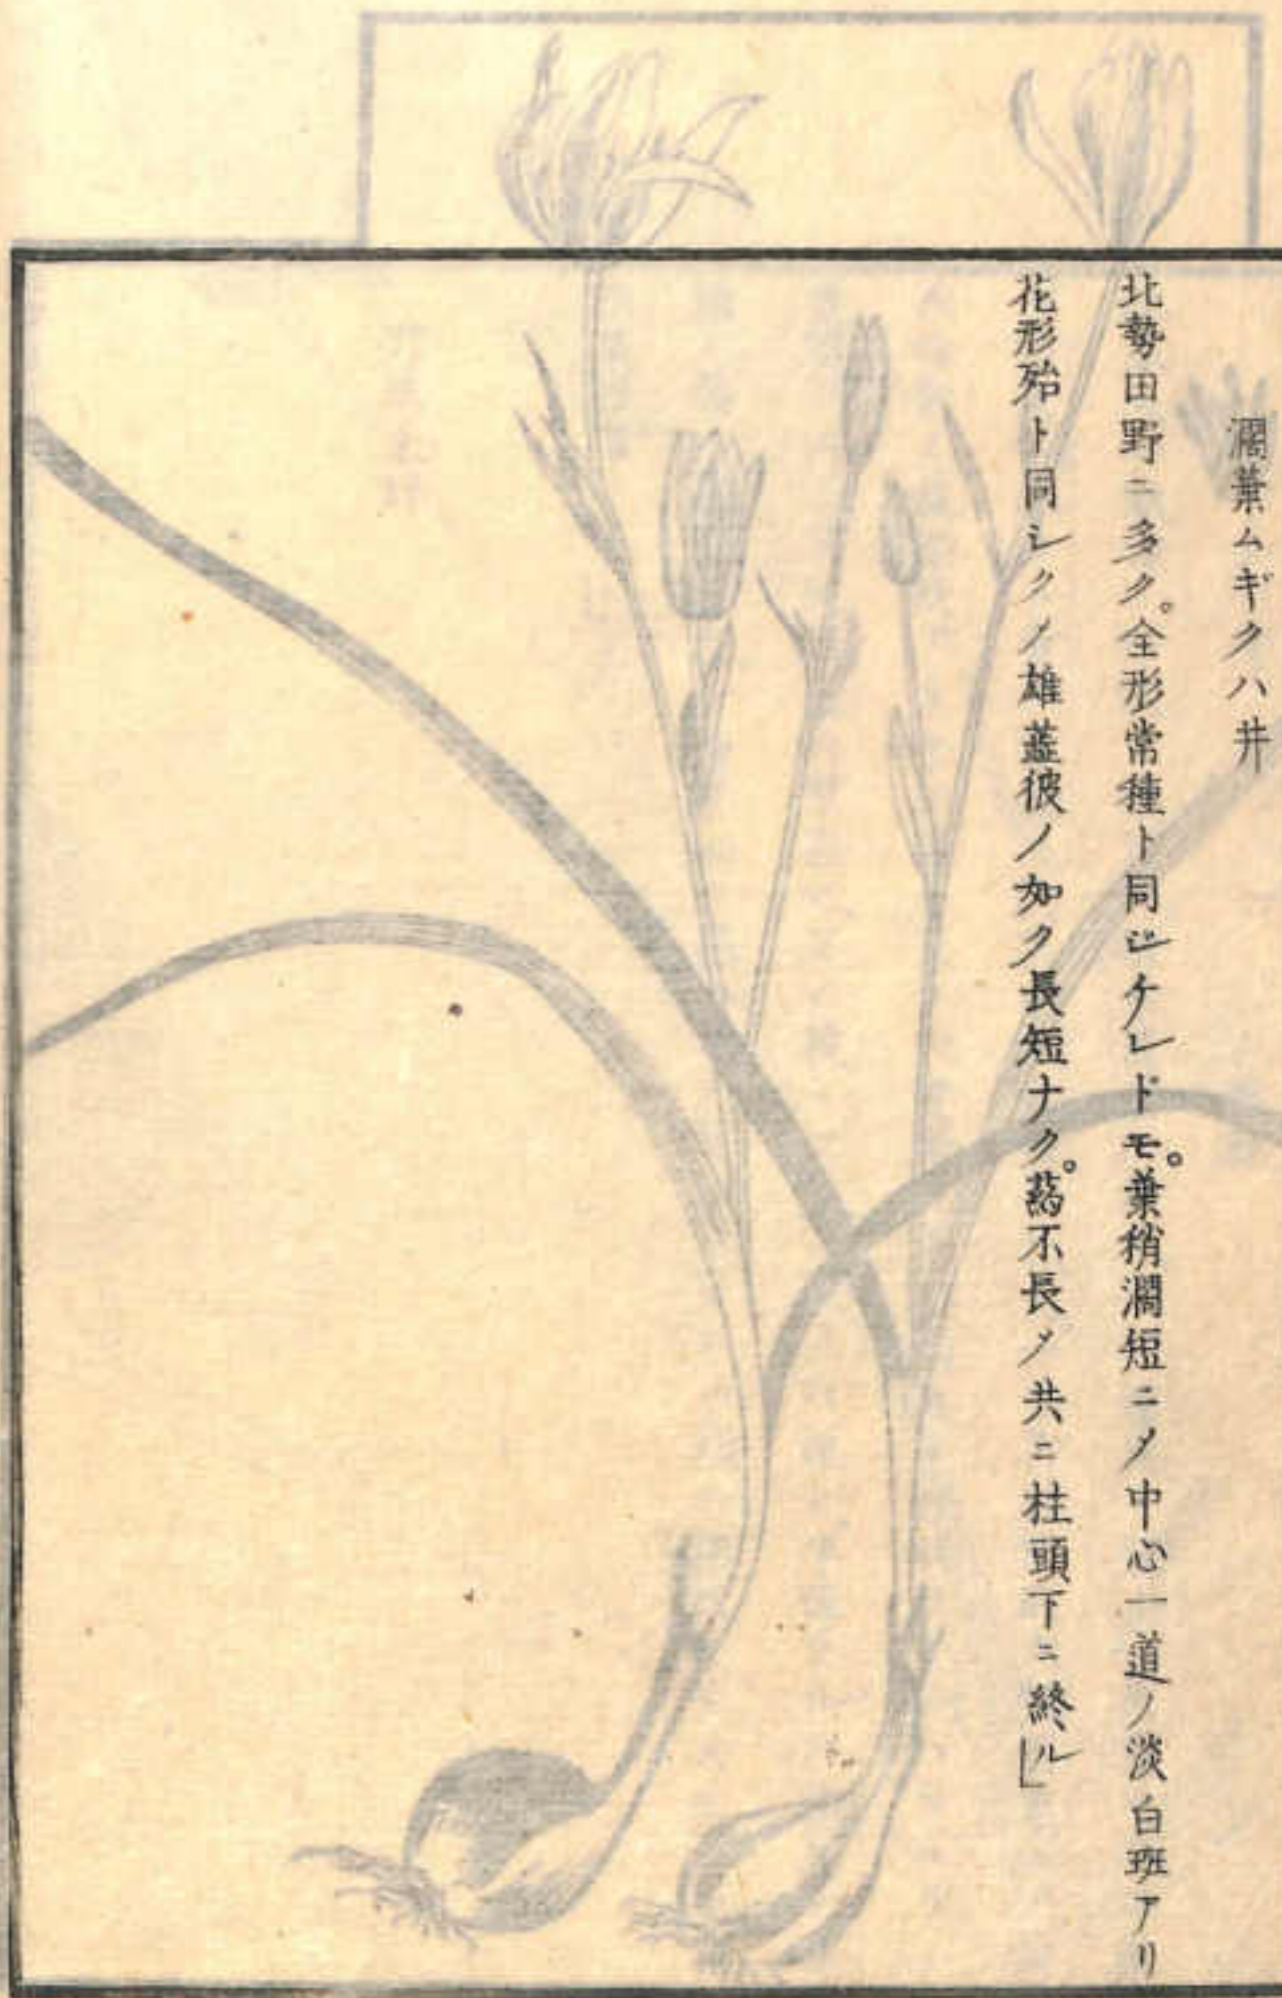 濶葉ムギクハ井
北勢田野ニ多ク。全形常種ト同ジケレドモ。葉稍濶短ニメ中心一道ノ淡白斑アリ
花形殆ト同シクメ雄蕋彼ノ如ク長短ナク。葯不長メ共ニ柱頭下ニ終ル」